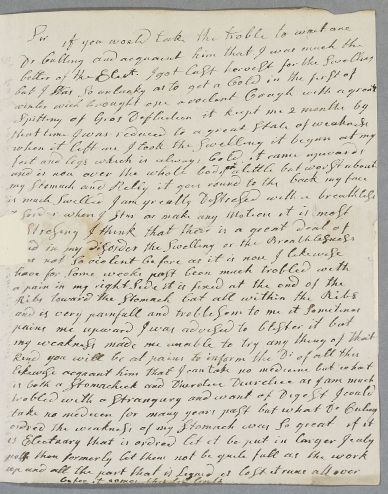 Sir if you would take the troble to wait one
Dr Culling and acquaint him that I was much the
better of the Elect. I got last harvest for the Swelling
but I was so unlucky as to get a Cold in the first of
winter with brought ane a violent Cough with a great
Spitting of Gros Defluction it kept me 2 months by
that time I was reduced to a great State of weakness
when it left me I took the Swelling it began at my
feet and legs which is always Cold it came upwards
and is now over the whole body a little but worst about
my Stomach and Belly it goes round to the back my face
is much Swelled I am greatly Distressed with a breathless
when I Stir or make any Motion it is most
Distressing I think that thair is a great deal of
in my disorder the Swelling or the Breathlesness
not so violent before as it is now I likewise
have for Some weeks past been much trobled with
a pain in my right Side it is fixed at the end of the
Ribs toward the Stomach but all within the Ribs
and is very painfull and troblesom to me it Sometimes
pains me upward I was advised to blister it but
my weakness made me unable to try any thing of that
kind you will be at pains to inform the Dr of all this
Likewise acquant him that I can take no medicine but what
is both a Stomachick and Diuretice as I am much
trobled with a Strangury and want of Digest I could
take no medicen for many years past but what Dr Culling
ordred the weakness of my Stomach was So great if it
is Electuary that is ordred let it be put in Larger Jealy
then formerly let them not be quite full as the work
up and all the part that is Liquid is lost it runs all over
before it comes